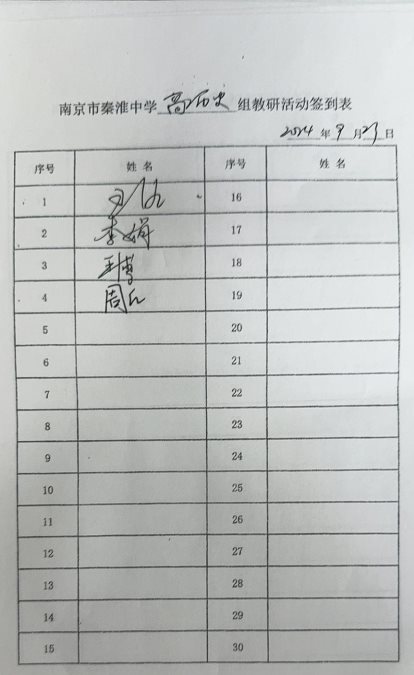 南京市秦淮中学 高一历史 组教研活动签到表
2024 年 9 月 27 日
序号 姓名 序号 姓名
1 16
2 李娟 17
3 王博 18
4 周 19
5 20
6 21
7 22
8 23
9 24
10 25
11 26
12 27
13 28
14 29
15 30